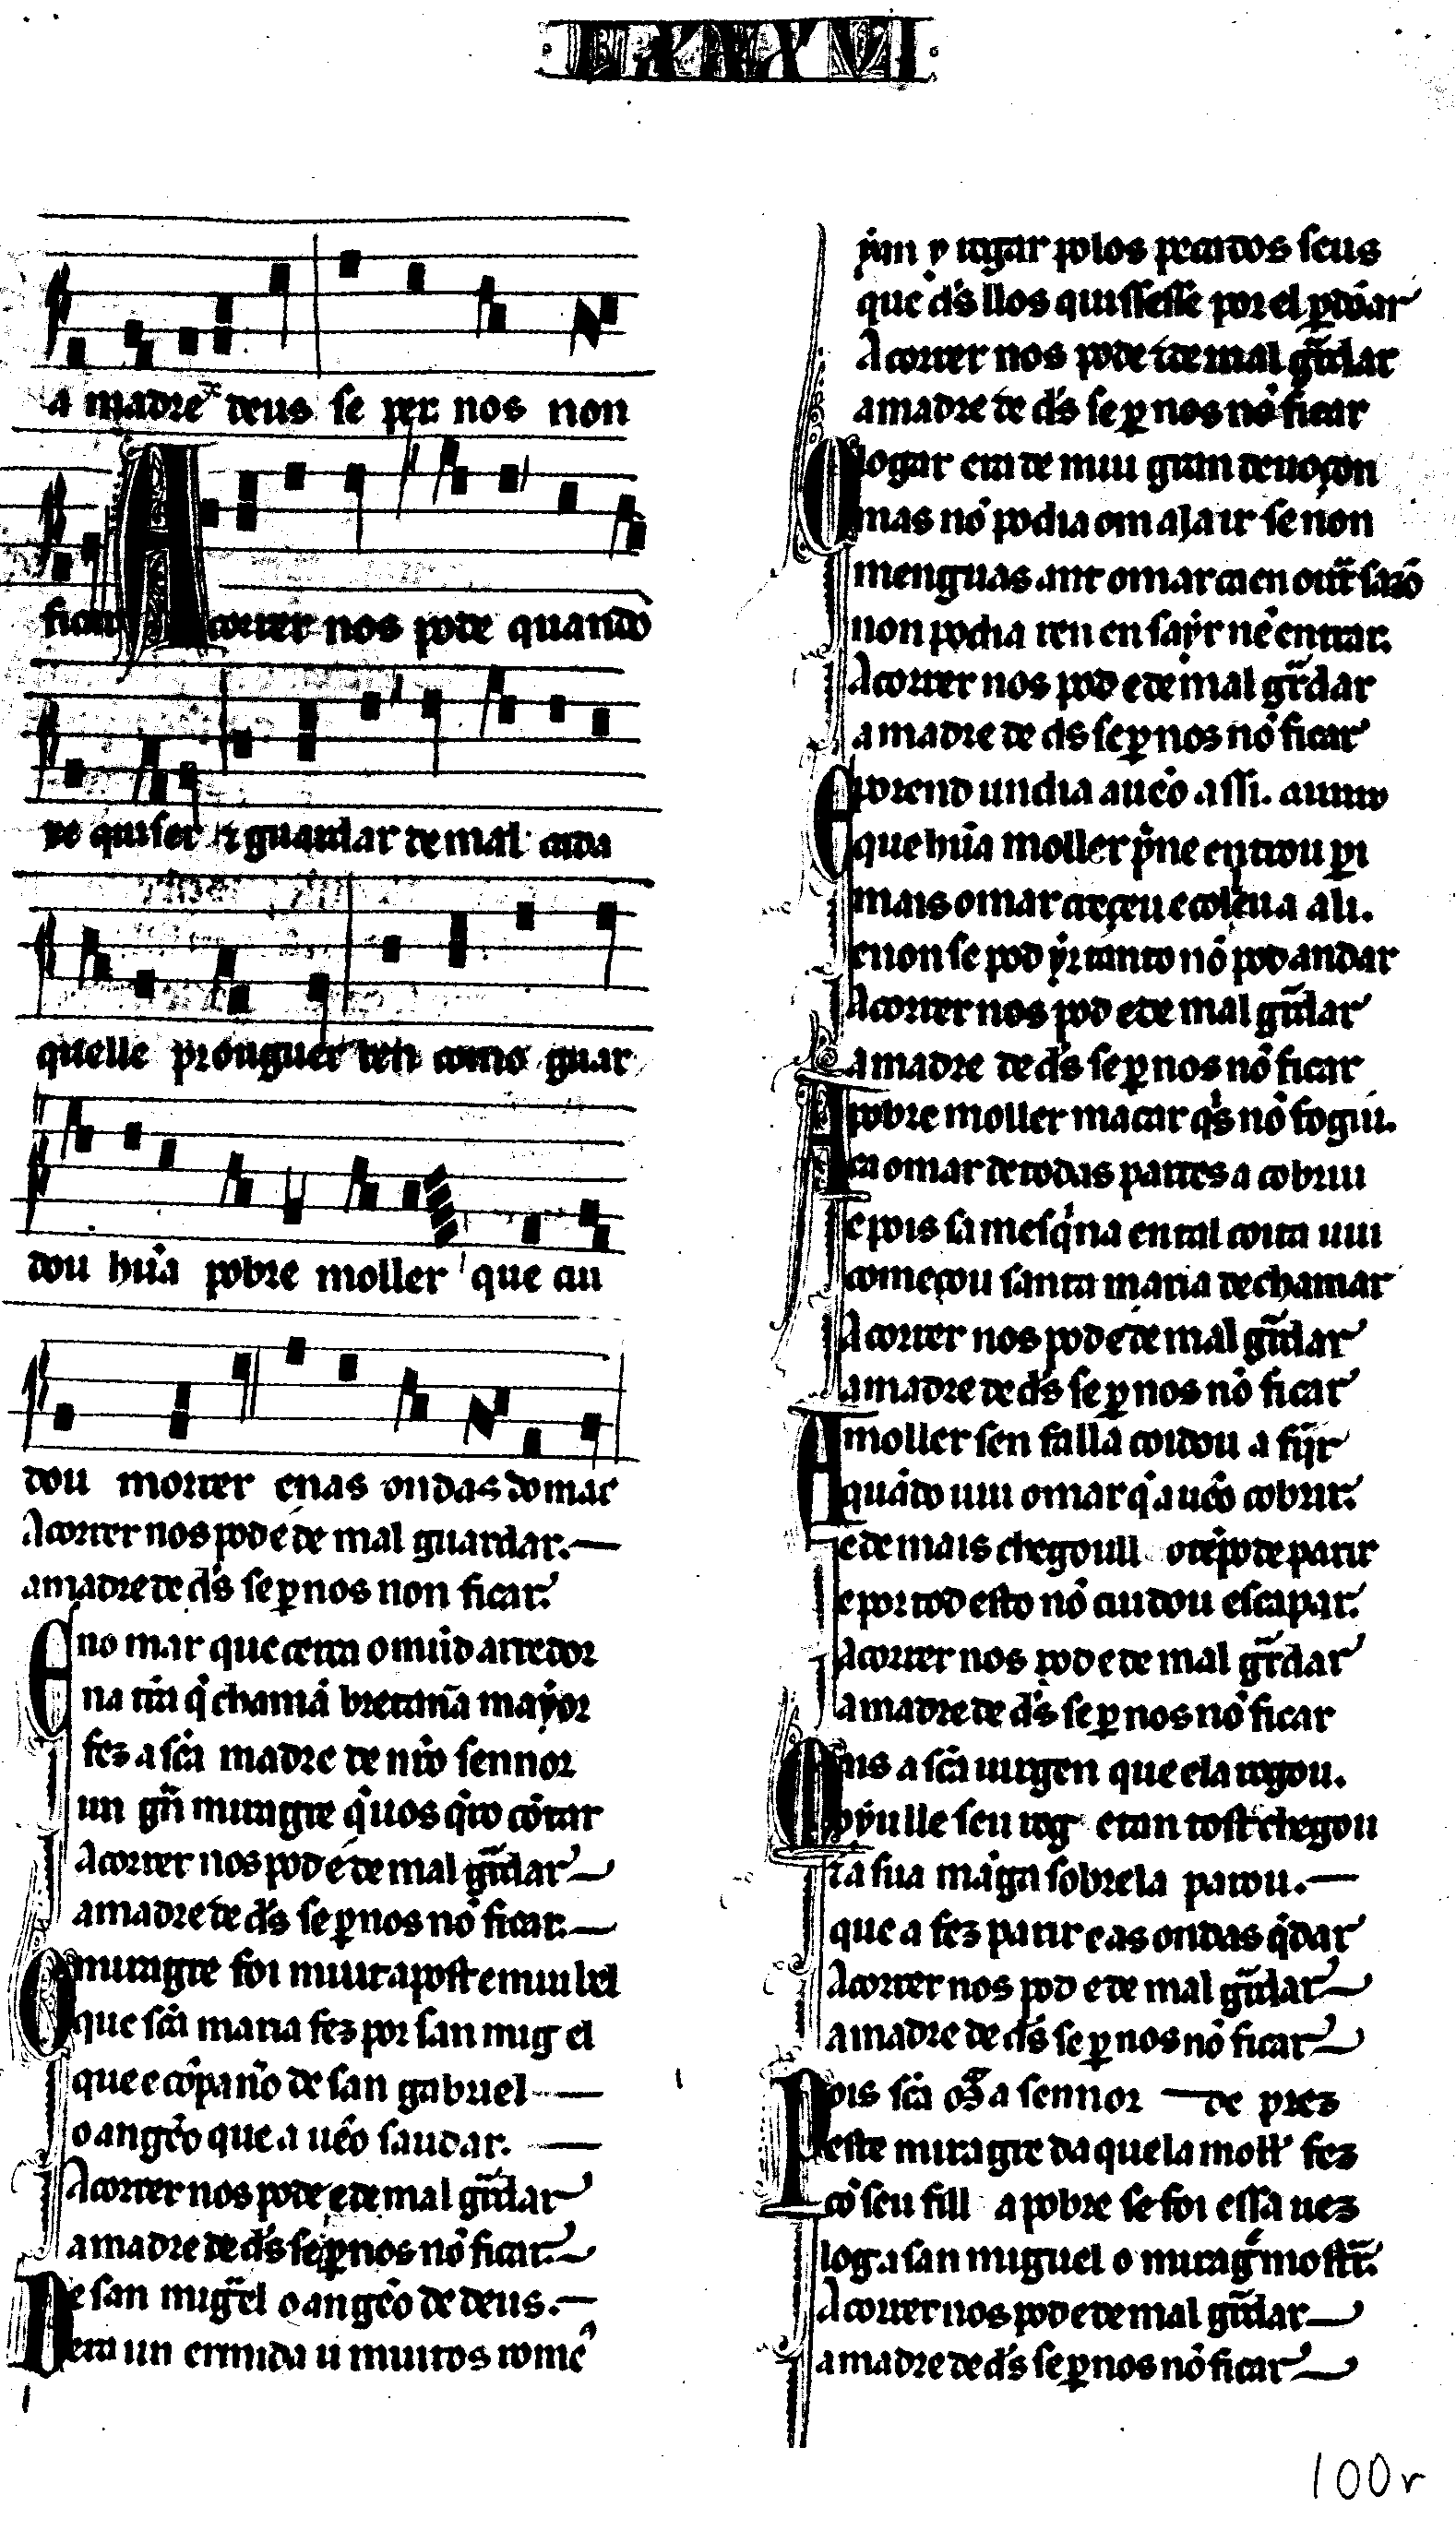 LXXXVI
a madre de deus se per nos non
ficar Acorrer nos pode quando
lle quiser e guardar de mal cada
quelle prouguer ben como guar
dou hũa pobre moller que cui
dou morrer enas ondas do mar
Acorrer nos pod e de mal guardar.
a madre de d̄s se ꝑ nos non ficar.
Eno mar que cerca o mũdo arredor
na t̃ra q̇ chamã bretanna mayor
fez a sc̄a madre de nr̄o sennor
un gr̃n miragre q̇ uos q̇ro cõtar
Acorrer nos pod e de mal gũdar
a madre de d̄s se ꝑ nos nõ ficar.
O miragre foi muit apost e mui bel
que sc̄a maria fez por san mig el
que e cõpann̄o de san gabriel
o angẽo que a uẽo saudar.
Acorrer nos pode e de mal gũdar
a madre de d̄s se ꝑ nos nõ ficar.
De san mig̃el o angẽo de deus.
era un ermida u muitos romẽ
ỹan y rogar polos pecados seus
que d̄s llos quisesse por el ꝑdõar
Acorrer nos pode e de mal gũdar
a madre de d̄s se ꝑ nos nõ ficar
O logar era de mui gran deuoçon
mas nõ podia om ala ir se non
menguas ant o mar ca en out̃ sazõ
non podia ren en sayr nẽ entrar.
Acorrer nos pod e de mal gr̃dar
a madre de d̄s se ꝑ nos nõ ficar
E porend un dia auẽo assi. auiuo
que hũa moller p̃ne entrou ꝑi
mais o mar creçeu e coleua ali.
e non se pod yr tanto nõ pod andar
Acorrer nos pod e de mal gũdar
a madre de d̄s se ꝑ nos nõ ficar
A pobre moller macar q̇s nõ fogiu.
ca o mar de todas partes a cobriu
e pois sa mesq̇na en tal coita uiu
começou santa maria de chamar
Acorrer nos pod e de mal gũdar
a madre de d̄s se ꝑ nos nõ ficar
A moller sen falla coidou a fĩir
quãdo uiu o mar q̇ a uẽo cobrir.
e de mais chegoull o tẽpo de parir
e por tod esto nõ cuidou escapar.
Acorrer nos pod e de mal gr̃dar
a madre de d̄s se ꝑ nos nõ ficar
Mas a sc̄a uirgen que ela rogou.
oyulle seu rog e tan tost chegou
ta sua mãga sobrela parou.
que a fez parir e as ondas q̇dar
Acorrer nos pod e de mal gũdar
a madre de d̄s se ꝑ nos nõ ficar
Pois sc̄a a sennor de prez
este miragre daquela moll̃ fez
cõ seu fill a pobre se foi essa uez
log a san miguel o mirag̃ mostr̃.
Acorrer nos pod e de mal gũdar
a madre de d̄s se ꝑ nos nõ ficar
100r